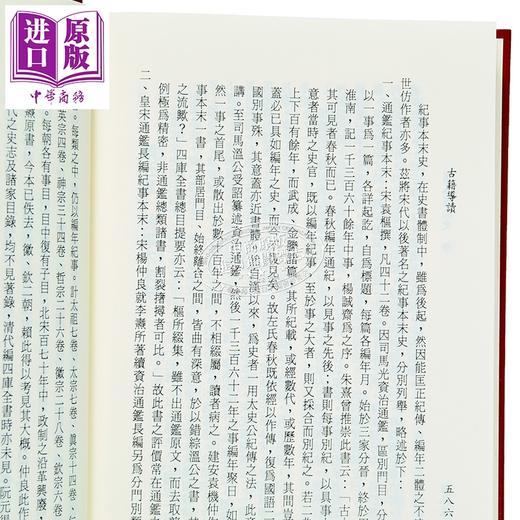 进口
原版
中華商務
古籍導讀
五八六
紀事本末史，在史書體制中，雖爲後起，然因能匡正紀傳、編年二體之不
世仿作者亦多。茲將宋代以後著名之紀事本末史，分別列舉，略述於下：
一、通鑑紀事本末：宋袁樞撰，凡四十二卷。因司馬光資治通鑑，區別門目，分
以一事爲一篇，各詳起訖，自爲標題，每篇各編年月。始於三家分晉，終於周
淮南，記一千三百六十餘年中事，楊誠齋爲之序。朱熹曾推崇此書云：「古
其可見者春秋而已。春秋編年通紀，以見事之先後；書則每事別紀，以具事
意者當時之史官，既以編年紀事，至於事之大者，則又採合而別紀之。若二
上下百有餘年，而武成、金縢諸篇，其所紀載，或經數代，或歷數年，其間豈
蓋必已具如編年之史，而今不復見矣。故左氏春秋既依經以作傳，復爲國語二
國別事殊，其意蓋亦近書體。然自漢以來，爲史者一用太史公紀傳之法，此意
講。至司馬溫公受詔纂述資治通鑑，然後一千三百六十二年之事編年聚日，如
然一事之首尾，或散出於數十百年之間，不相綴屬，讀者病之。建安袁機仲
事本末一書，其部居門目、始終離合之間，皆曲有深意，於以錯綜溫公之書，其
之流歟？」四庫全書總目提要亦云：「樞所綴集，雖不出通鑑原文，而去取
例極爲精密，非通鑑總類諸書，割裂撏撦者可比。」故此書之評價常在通鑑之
二、皇宋通鑑長編紀事本末：宋楊仲良就李燾所著續資治通鑑長編另爲分門別類
。每類之中，仍以編年紀事。計太祖七卷、太宗七卷、眞宗十四卷、仁
英宗四卷、神宗三十四卷、哲宗二十六卷、徽宗二十八卷、欽宗六卷。
。每朝各有事目，目中復有子目，北宋百七十年中，政制之沿革興廢，
燾原書，今本已佚去，徽、欽二朝，賴此得以考見其大概。仲良此作
代之史志及諸家目錄，均不見著錄，清代編四庫全書時亦未見。阮元得